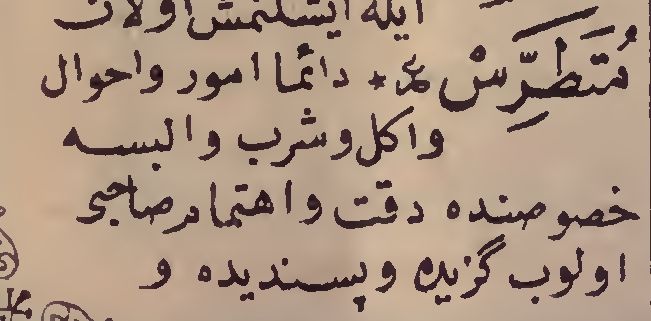 ايله ايشلنمش اولان
مُتَطَرِّسْ ع٭ دائما امور واحوال
واكل وشرب والبسه
خصوصنده دقت واهتمام صاحبى
اولوب گزيده وپسنديده و